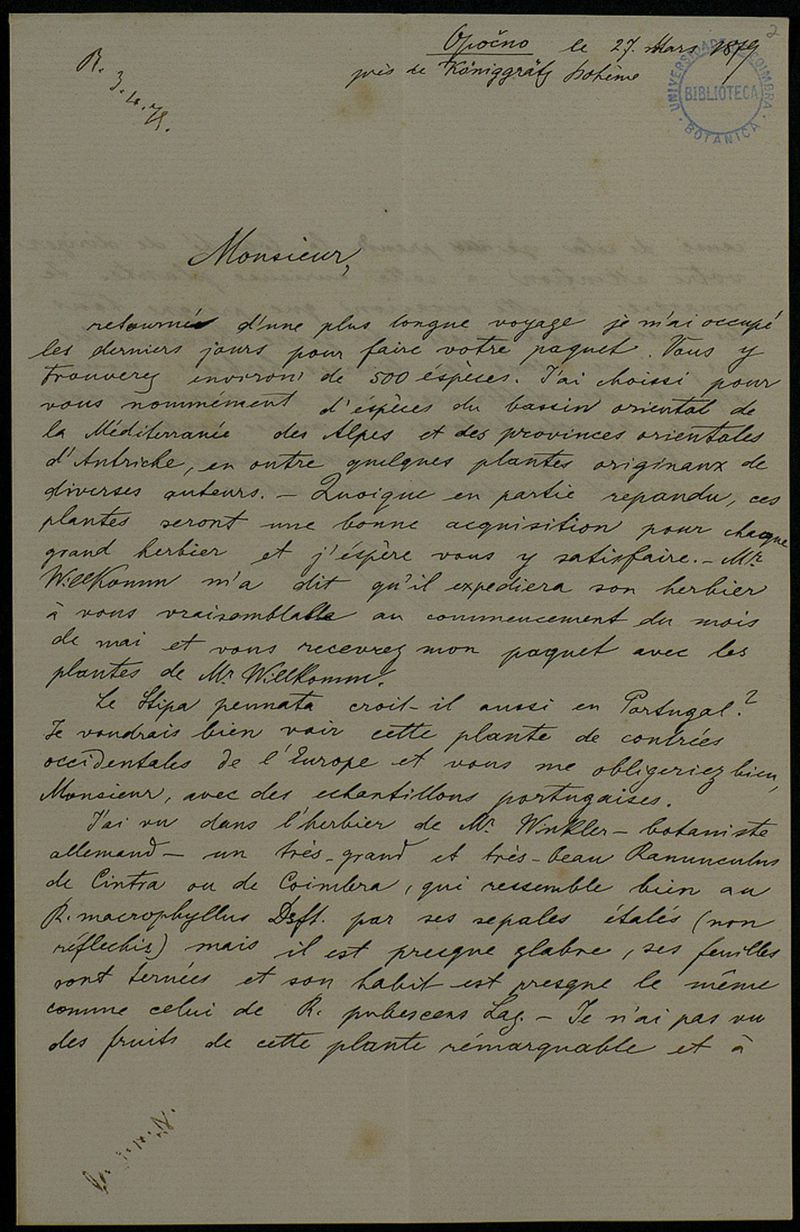 Opočno le 27. Mars 1879
près de Königgrätz Bohême
R. 3.4.79.
2
UNIVERSIDADE COIMBRA
BIBLIOTECA
BOTANICA
Monsieur,
retourné d'une plus longue voyage je m'ai occupé
les derniers jours pour faire votre paquet. Vous y
trouverez environ de 500 éspèces. J'ai choissi pour
vous nommément d'éspèces du bassin oriental de
la Méditerranée des Alpes et des provinces orientales
d'Autriche, en outre quelques plantes originaux de
diverses auteurs. – Quoique en partie repandu, ces
plantes seront une bonne acquisition pour chaque
grand herbier et j'éspère vous y satisfaire. – Mr
Willkomm m'a dit qu'il expediera son herbier
à vous vraisemblable au commencement du mois
de mai et vous recevrez mon paquet avec les
plantes de Mr Willkomm.
Le Stipa pennata croit-il aussi en Portugal?
Je voudrais bien voir cette plante de contrées
occidentales de l'Europe et vous me obligeriez bien,
Monsieur, avec des echantillons portugaises.
J'ai vu dans l'herbier de Mr Winkler – botaniste
allemand – un très-grand et très-beau Ranunculus
de Cintra ou de Coimbra, qui ressemble bien au
R. macrophyllus Desft. par ses sepales étalés (non
réflechis) mais il est presque glabre, ses feuilles
sont ternées et son habit est presque le même
comme celui de R. pubescens Lag. – Je n'ai pas vu
des fruits de cette plante rémarquable et à